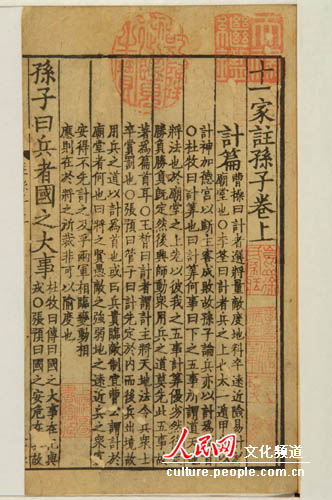 十一家註孫子卷上
計篇
曹操曰計者選將量敵度地料卒遠近險易計
於廟堂也○李筌曰計者兵之上也太一遁甲以
計神加德宮以斷主客成敗故孫子論兵亦以計爲篇首
○杜牧曰計算也曰計算何事曰下之五事所謂道天地
將法也於廟堂之上先以彼我之五事計算優劣然後定
勝負勝負既定然後興師動衆用兵之道莫先此五事故
著爲篇首耳○王晳曰計者謂計主將天地法令兵衆士
卒賞罰也○張預曰管子曰計先定於內而後兵出境故
用兵之道以計爲首也或曰兵貴臨敵制宜曹公謂計於
廟堂者何也曰將之賢愚敵之強弱地之遠近兵之衆寡
安得不先計之及乎兩軍相臨變動相
應則在於將之所裁非可以隃度也
孫子曰兵者國之大事
杜牧曰傳曰國之大事在祀與
戎○張預曰國之安危在兵故
人民网 文化频道
culture.people.com.cn